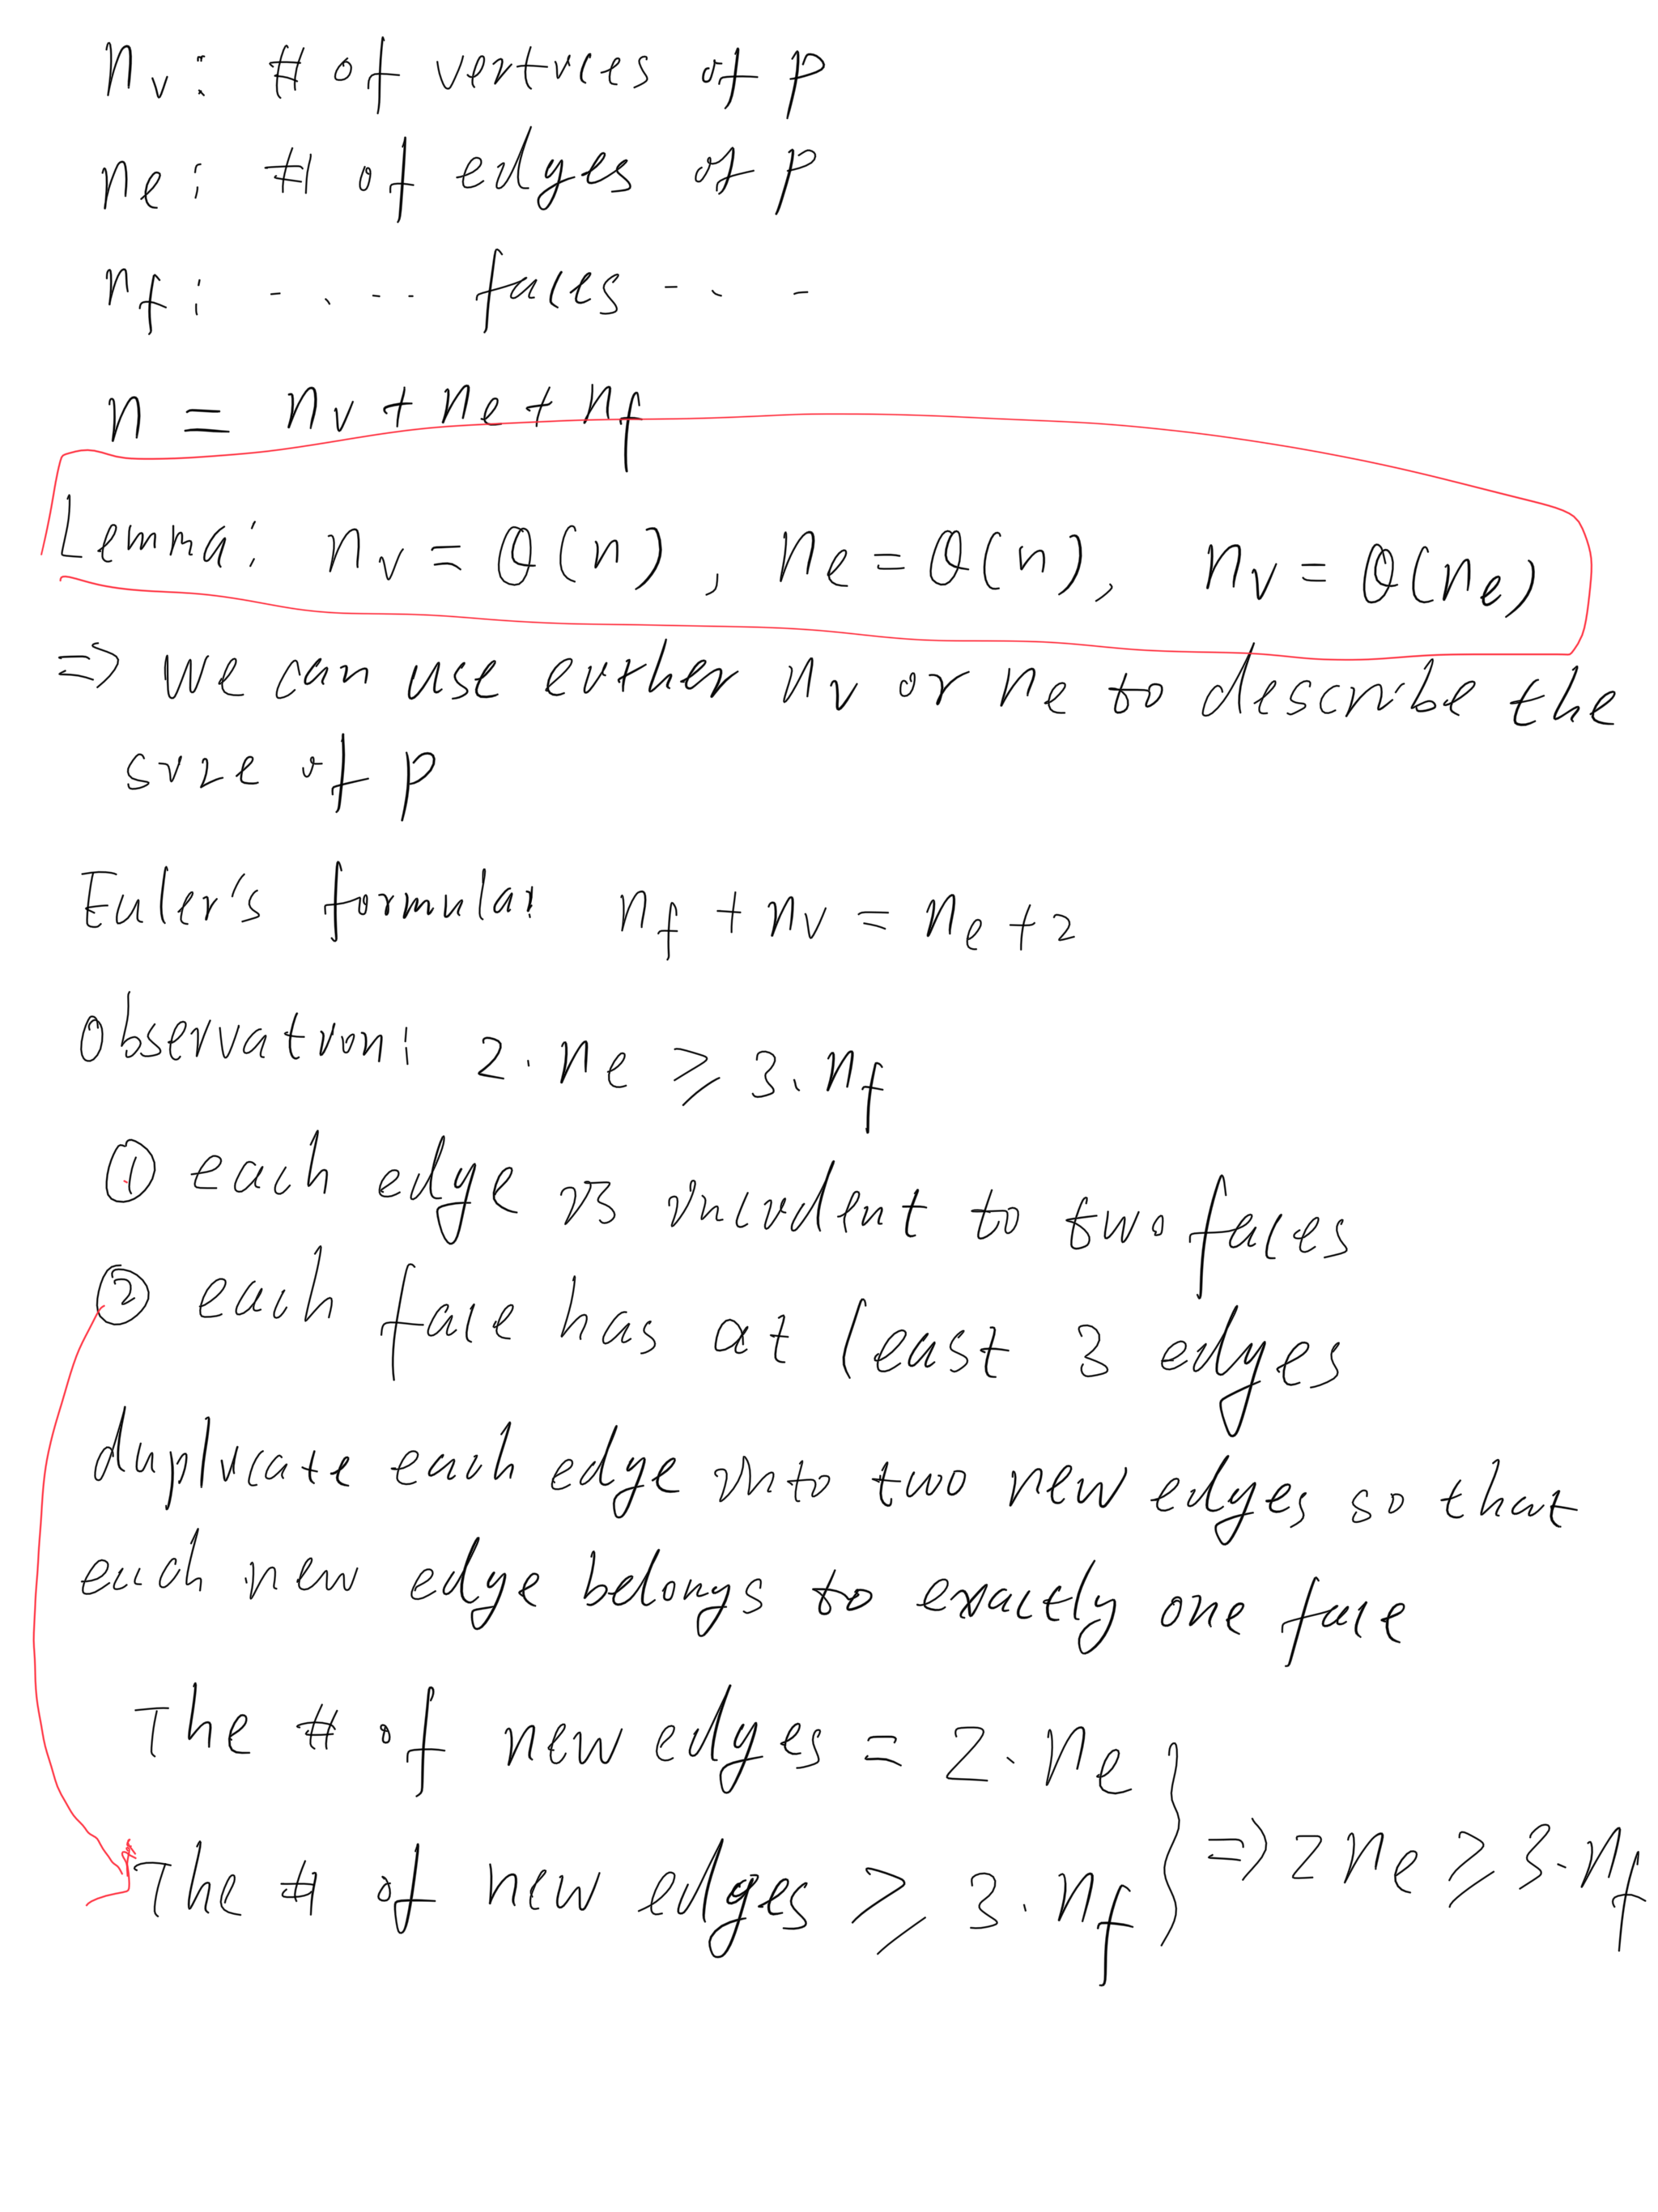 n_v : # of vertices of P
n_e : # of edges of P
n_f : - . . . . faces - . . -
n = n_v + n_e + n_f
Lemma: n_v = Θ(n), n_e = Θ(n), n_v = Θ(n_e)
⇒ we can use either n_v or n_e to describe the
size of P
Euler's formula: n_f + n_v = n_e + 2
observation: 2 · n_e ≥ 3 · n_f
① each edge is incident to two faces
② each face has at least 3 edges
duplicate each edge into two new edges so that
each new edge belongs to exactly one face
The # of new edges = 2 · n_e
The # of new edges ≥ 3 · n_f } ⇒ 2 n_e ≥ 3 · n_f